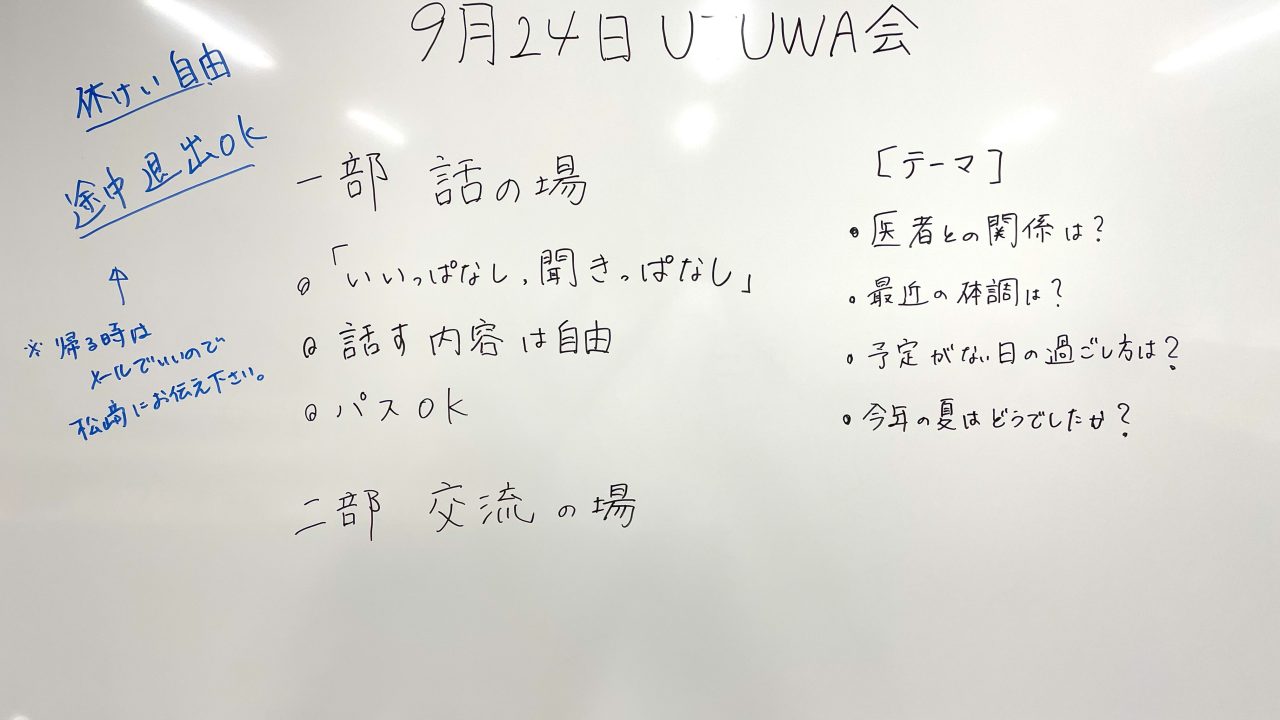 9月24日 U-UWA会
休けい自由
途中退出OK
↑
※帰る時は
メールでいいので
松崎にお伝え下さい。
一部 話の場
「いいっぱなし,聞きっぱなし」
話す内容は自由
パスOK
二部 交流の場
[テーマ]
・医者との関係は?
・最近の体調は?
・予定がない日の過ごし方は?
・今年の夏はどうでしたか?